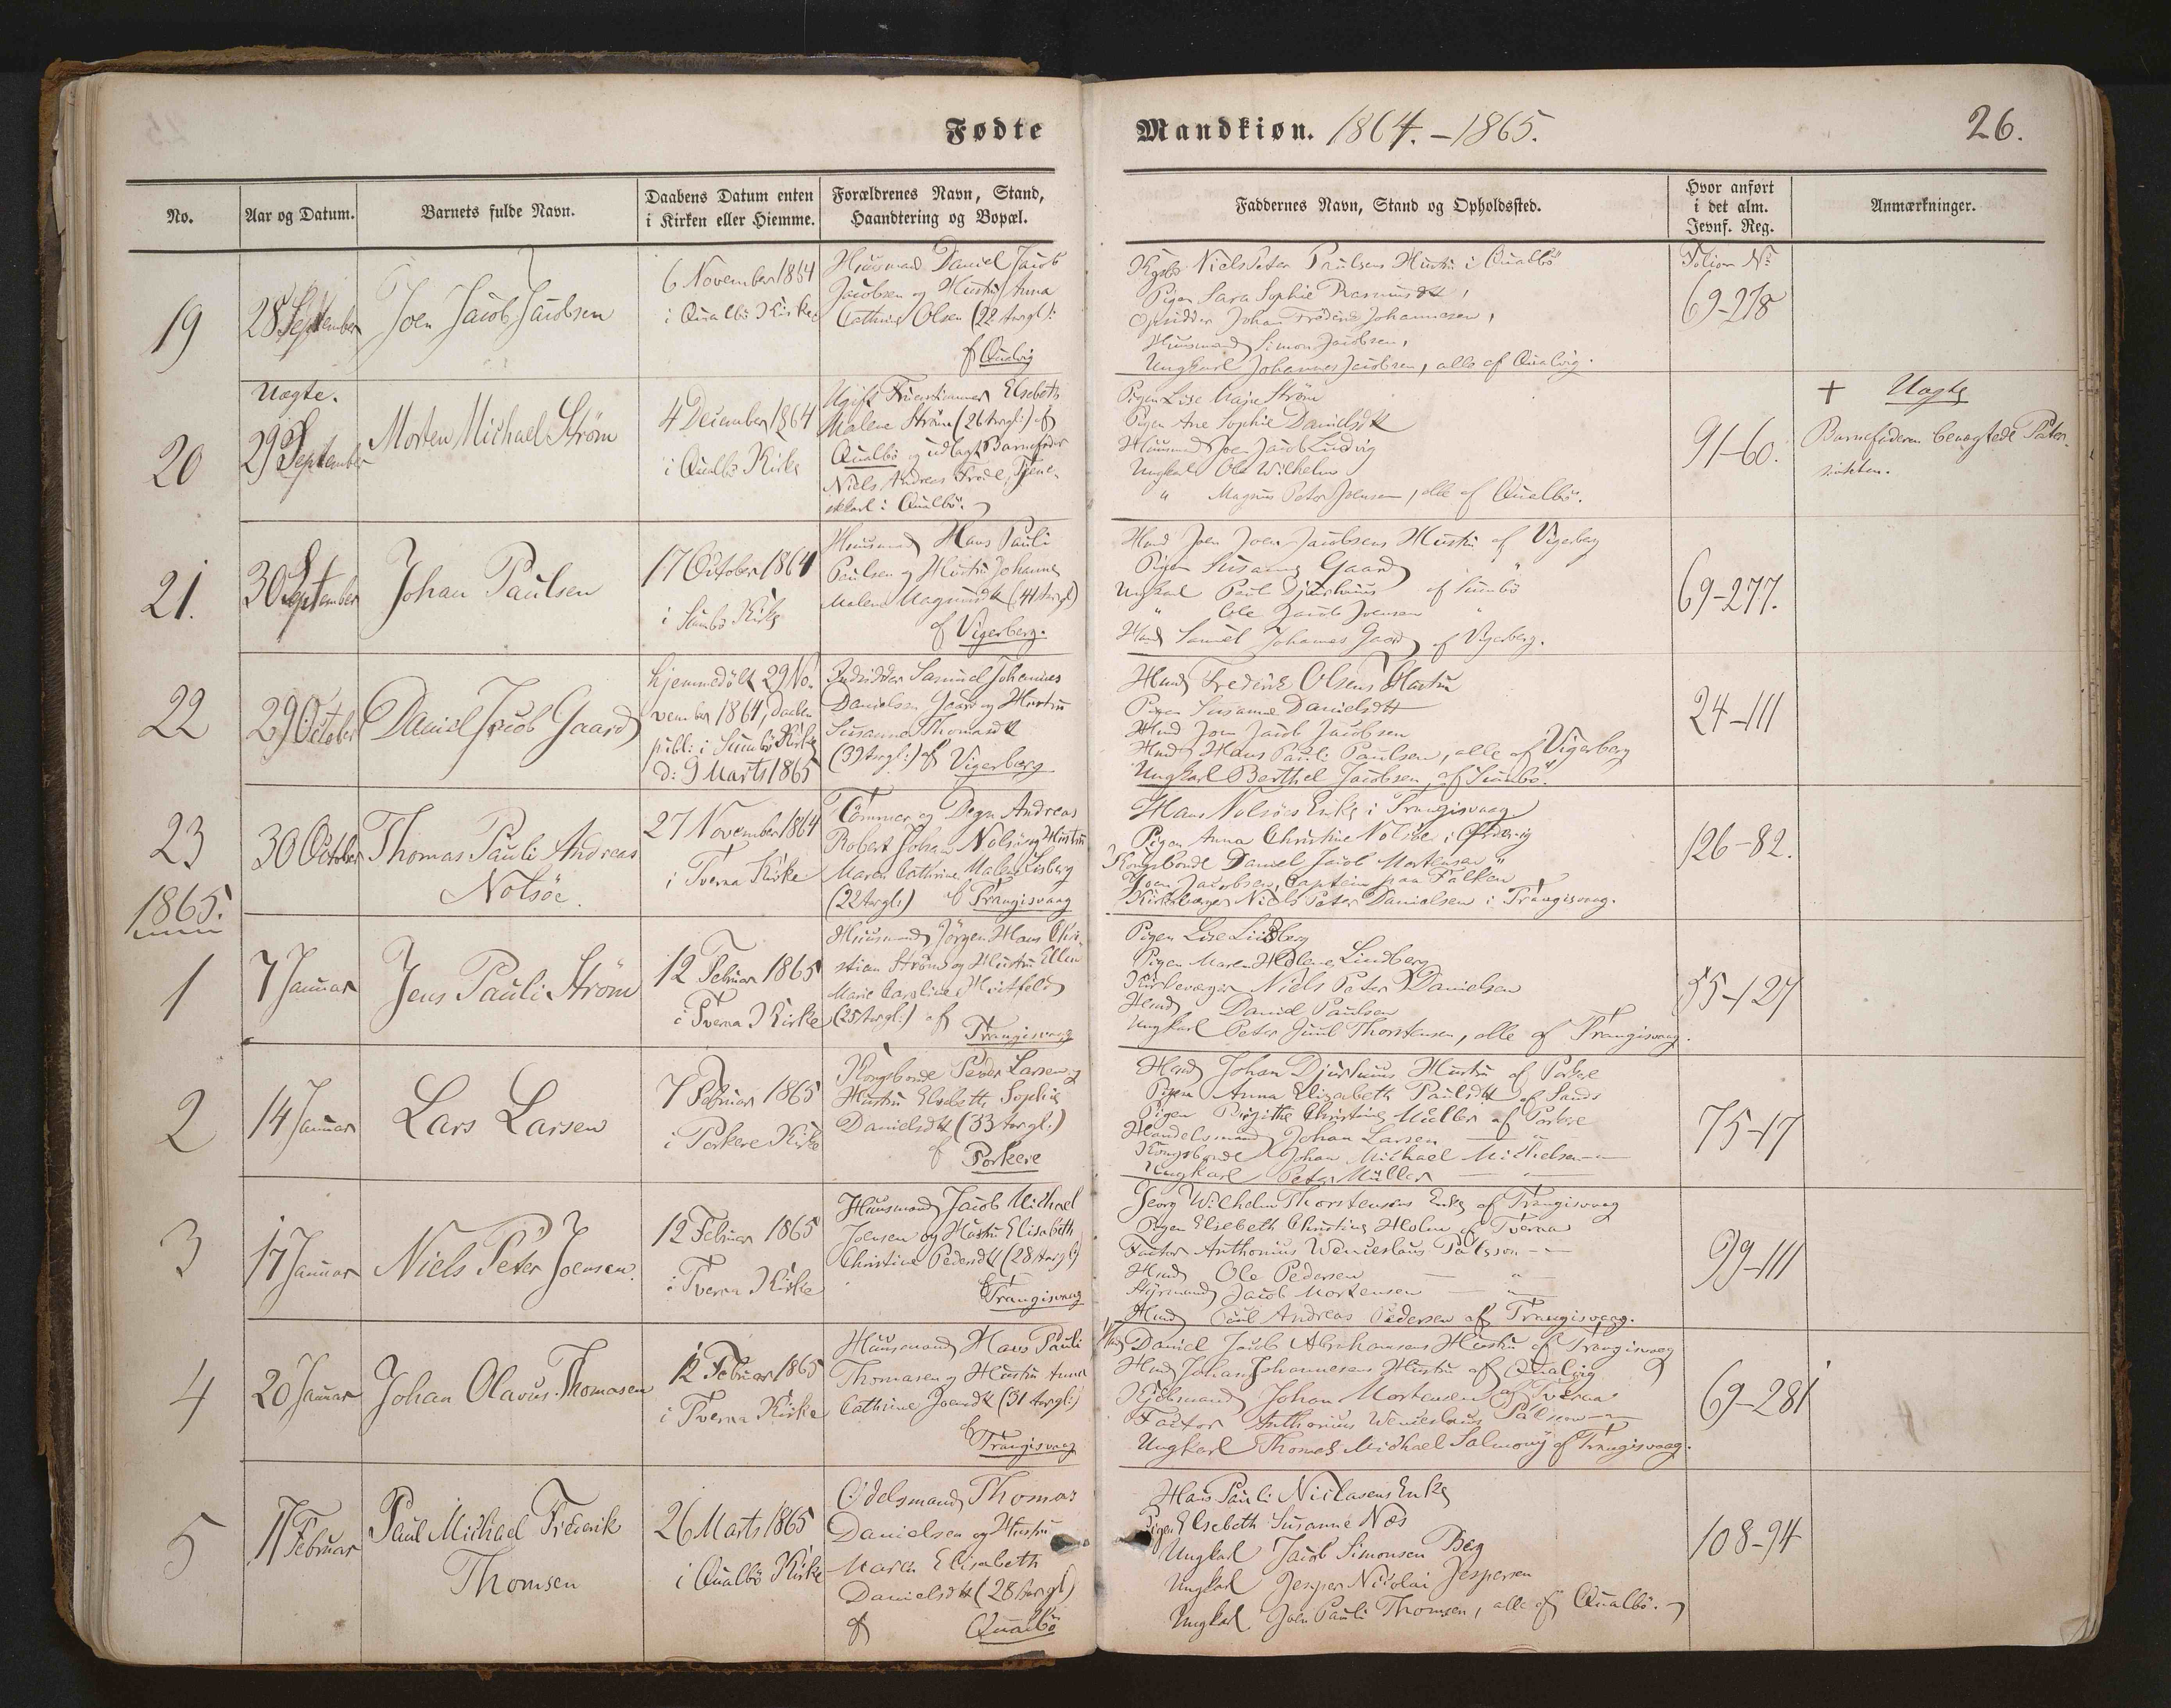 Fødte
Mandkiøn. 1864.-1865.
26.
No.
Aar og Datum.
Barnets fulde Navn.
Daabens Datum enten
i Kirken eller Hiemme.
Forældrenes Navn, Stand,
Haandtering og Bopæl.
Faddernes Navn, Stand og Opholdssted.
Hvor anført
i det alm.
Jevnf. Reg.
Anmærkninger.
19
28 September
Joen Jacob Jacobsen
6 November 1864
i Qualbö Kirke
Huusmand Daniel Jacob
Jacobsen og Hustru Anna
Cathrine Olsen (22 Aargl:
af Qualvig
Niels Peter Poulsens Hustru i Qualbö
Pigen Sara Sophie Rasmusdtt,
Opsidder Johan Frederik Johannesen,
Huusmand Simon Jacobsen,
Ungkarl Johannes Jacobsen, alle af Qualvig.
Folium No
69-278
Uægte.
20
29 September
Morten Michael Ström
4 December 1864
i Qualbö Kirke
Ugift Fruentimmer Elsebeth
Malene Ström (26 Aargl:) af
Qualbö og udlagt Barnefader
Niels Andreas Trole, Tjene-
stekarl i Qualbö.
Pigen Lise Maje Ström
Pigen Ane Sophie Danielsdtt
Huusmand Joen Jacob Ludvig
Ungkarl Ole Wilhelm
" Magnus Peter Joensen, alle af Qualbö.
91-60.
+ Uægte
Barnefaderen benægtede Pater-
niteten.
21.
30 September
Johan Paulsen
17 October 1864
i Sumbö Kirke
Huusmand Hans Pauli
Paulsen og Hustru Johanne
Malene Magnusdtt (41 Aargl)
af Vigerberg.
Hmd Joen Jacobsens Hustru af Vigerberg
Pigen Susanne Gaard "
Ungkarl Paul Djurhuus af Sumbö
" Ole Jacob Joensen "
Hmd Samuel Johannes Gaard af Vigerberg.
69-277.
22
29 October
Daniel Jacob Gaard
hjemmedöbt 29 No-
vember 1864, Daaben
publ: i Sumbö Kirke
d: 9 Marts 1865
Indsidder Samuel Johannes
Danielsen Gaard og Hustru
Susanne Thomasdtt
(39 Aargl:) af Vigerberg
Hmd Frederik Olsens Hustru
Pigen Susanne Danielsdtt
Hmd Joen Jacob Jacobsen
Hmd Hans Pauli Paulsen, alle af Vigerberg
Ungkarl Berthel Jacobsen af Sumbö.
24-111
23
30 October
Thomas Pauli Andreas
Nolsöe.
27 November 1864
i Tverna Kirke
Tömmer og Degn Andreas
Robert Johan Nolsöe og Hustru
Maren Cathrine Malene Lisberg
(22 Aargl:) af Trangisvaag
Hans Nolsöes Enke i Trangisvaag
Pigen Anna Christine Nolsöe i
Kongsbonde Daniel Jacob Mortensen "
Joen Jacobsen, Captein paa Falken
Kirkeværger Niels Peter Danielsen i Trangisvaag.
126-82.
1865.
1
7 Januar
Jens Pauli Ström
12 Februar 1865
i Tverna Kirke
Huusmand Jörgen Hans Chri-
stian Ström og Hustru Ellen
Marie Caroline Hvitfeld
(25 Aargl:) af
Trangisvaag
Pigen Lise Lisberg
Pigen Maren Helene Lindberg
Kirkeværger Niels Peter Danielsen
Hmd Daniel Paulsen
Ungkarl Peter Juul Thorstensen, alle af Trangisvaag.
55-127
2
14 Januar
Lars Larsen
7 Februar 1865
i Porkere Kirke
Kongsbonde Peder Larsen og
Hustru Elsebeth Sophie
Danielsdtt (33 Aargl:)
af Porkere
Hmd Johan Djurhuus Hustru af Porkere
Pigen Anna Elizabeth Paulsdtt af Sands
Pigen Birgithe Christine Müller af Porkere
Handelsmand Johan Larsen — "
Kongsbonde Johan Michael Michelsen — "
Ungkarl Peter Müller — "
75-17
3
17 Januar
Niels Peter Joensen.
12 Februar 1865
i Tverna Kirke
Huusmand Jacob Michael
Joensen og Hustru Elisabeth
Christine Pedersdtt (28 Aargl)
af Trangisvaag
Georg Wilhelm Thorstensens Enke af Trangisvaag
Pigen Elsebeth Christine Holm af Tveraa
Factor Anthonius Wenceslaus Pálsson — "
Hmd Ole Pedersen — "
Styrmand Jacob Mortensen — "
Hmd Poul Andreas Pedersen af Trangisvaag.
99-111
4
20 Januar
Johan Olavus Thomasen
12 Februar 1865
i Tverna Kirke
Huusmand Hans Pauli
Thomasen og Hustru Anna
Cathrine Joensdtt (31 Aargl:)
af Trangisvaag
Hmd Daniel Jacob Abrahamsens Hustru af Trangisvaag
Hmd Johan Johannesens Hustru af Qualvig
Kjöbmand Johan Mortensen af Tveraa
Factor Anthonius Wenceslaus Pálsson — "
Ungkarl Thomas Michael Salmony af Trangisvaag.
69-281
5
11 Februar
Paul Michael Frederik
Thomsen
26 Marts 1865
i Qualbö Kirke
Odelsmand Thomas
Danielsen og Hustru
Maren Elisabeth
Danielsdtt (28 Aargl)
af Qualbö
Hans Pauli Niclasens Enke
Pigen Elsebeth Susanne Næs
Ungkarl Jacob Simonsen Berg
Ungkarl Jesper Nicolai Jespersen
Ungkarl Joen Pauli Thomsen, alle af Qualbö.
108-94